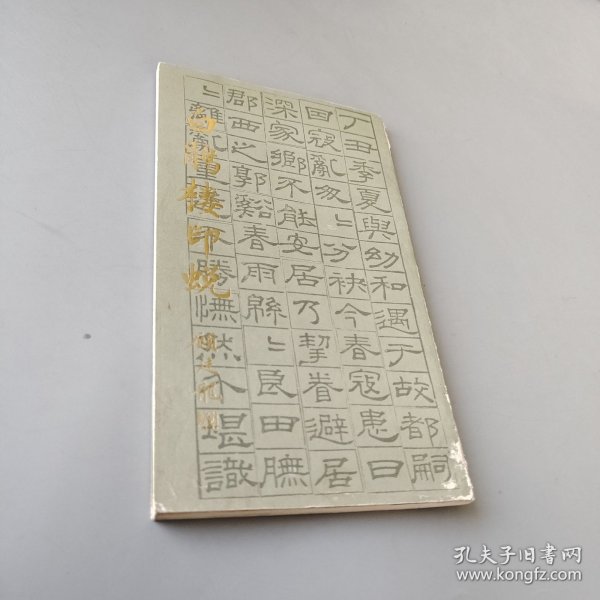 丁丑季夏與幼和遇于故都嗣
因寇亂匆〻分袂今春寇患日
深家鄉不能安居乃挈眷避居
郡西之郭谿春雨緜〻良田膴
〻離亂重勝憮然介堪識
白樓印蛻
孔夫子旧书网
www.kongfz.com